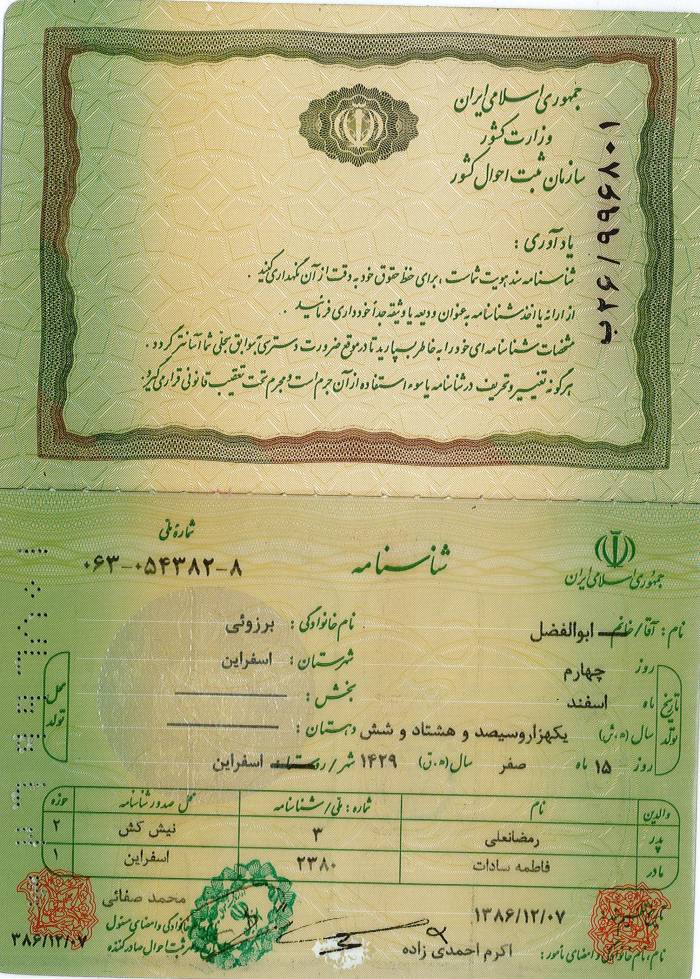 جمهوری اسلامی ایران
وزارت کشور
سازمان ثبت احوال کشور
ب۲۶/۱۰۸۶۹۹
یادآوری :
شناسنامه سند هویت شماست ، برای حفظ حقوق خود به دقت از آن نگهداری کنید .
از ارائه یا اخذ شناسنامه به عنوان ودیعه یا وثیقه جداً خودداری فرمائید .
مشخصات شناسنامه ای خود را به خاطر بسپارید تا در موقع ضرورت دسترسی به سوابق سجلی شما آسانتر گردد .
هرگونه تغییر و تحریف در شناسنامه یا سوء استفاده از آن جرم است و مجرم تحت تعقیب قانونی قرار می گیرد.
جمهوری اسلامی ایران
شناسنامه
شماره ملی
۰۶۳-۰۵۴۳۸۲-۸
نام : آقا/خانم ابوالفضل نام خانوادگی : برزوئی
تاریخ تولد
روز چهارم
ماه اسفند
سال (ه.ش) یکهزاروسیصد و هشتاد و شش
روز ۱۵ ماه صفر سال(ه.ق) ۱۴۲۹
محل تولد
شهرستان : اسفراین
بخش :
دهستان :
شهر/روستا : اسفراین
والدین نام شماره : ملی/شناسنامه محل صدور شناسنامه حوزه
پدر رمضانعلی ۳ نیش کش ۲
مادر فاطمه سادات ۲۳۸۰ اسفراین ۱
۱۳۸۶/۱۲/۰۷
نام، نام خانوادگی و امضای مأمور : اکرم احمدی زاده
محمد صفائی
نام خانوادگی و امضای مسئول
ثبت احوال صادرکننده
۳۸۶/۱۲/۰۷